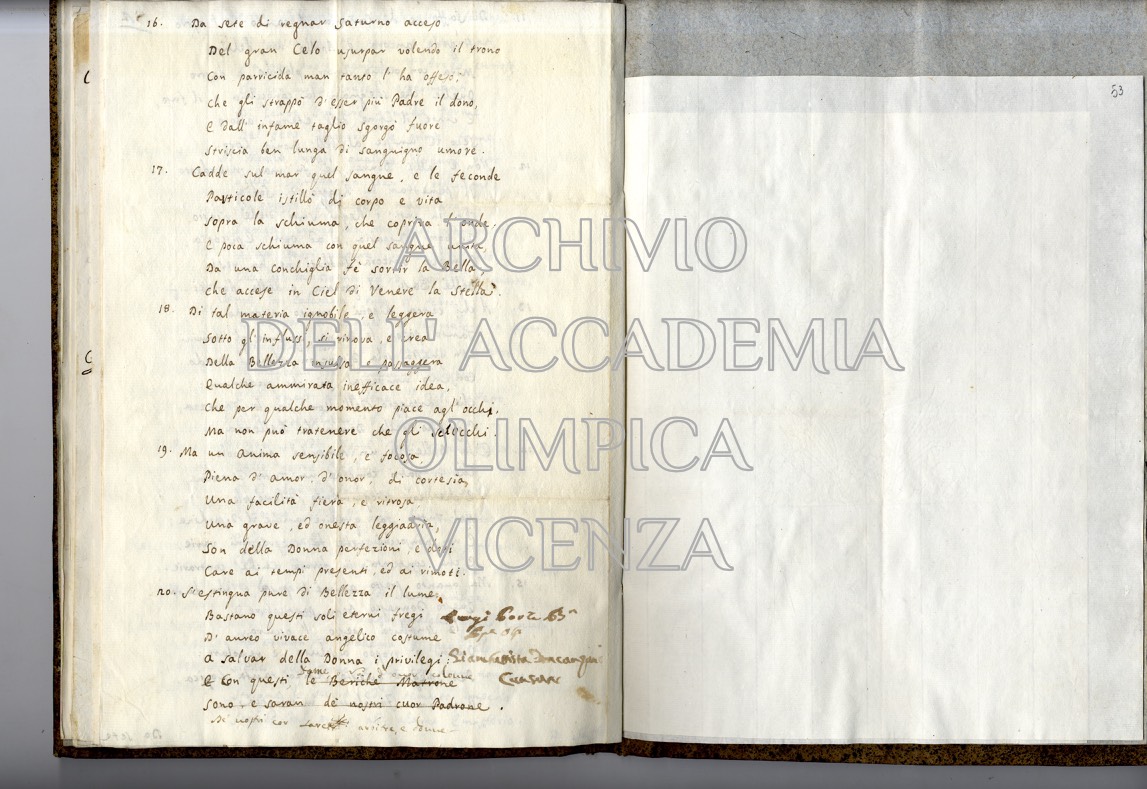 16. Da sete di regnar Saturno acceso
Del gran Celo usurpar volendo il trono
Con parricida man tanto l' ha offeso;
Che gli strappò d'esser più Padre il dono,
E dall' infame taglio sgorgò fuore
Striscia ben lunga di sanguigno umore.
17. Cadde sul mar quel sangue, e le feconde
Particole istillò di corpo e vita
Sopra la schiuma, che copriva l'onde.
E poca schiuma con quel sangue unita,
Da una conchiglia fè sortir la Bella,
Che accese in Ciel di Venere la Stella.
18. Di tal materia ignobile, e leggera
Sotto gl'influssi, si rinova, e crea
Della Bellezza insulsa e passaggera
Qualche ammirata inefficace idea,
Che per qualche momento piace agl'occhi,
Ma non può tratenere che gli sciocchi.
19. Ma un Anima sensibile, e focosa
Piena d'amor, d'onor, di cortesia,
Una facilità fiera, e ritrosa
Una grave, ed onesta leggiadria,
Son della Donna perfezioni, e doti
Care ai tempi presenti, ed ai rimoti.
20. S'estingua pure di Bellezza il lume,
Bastano questi soli eterni fregi
D'aureo vivace angelico costume
A salvar della Donna i privilegi:
E con questi le Beriche Matrone
Sono, e saran de nostri cuor Padrone.
De nostri cor
53
ARCHIVIO
DELL'ACCADEMIA
OLIMPICA
VICENZA